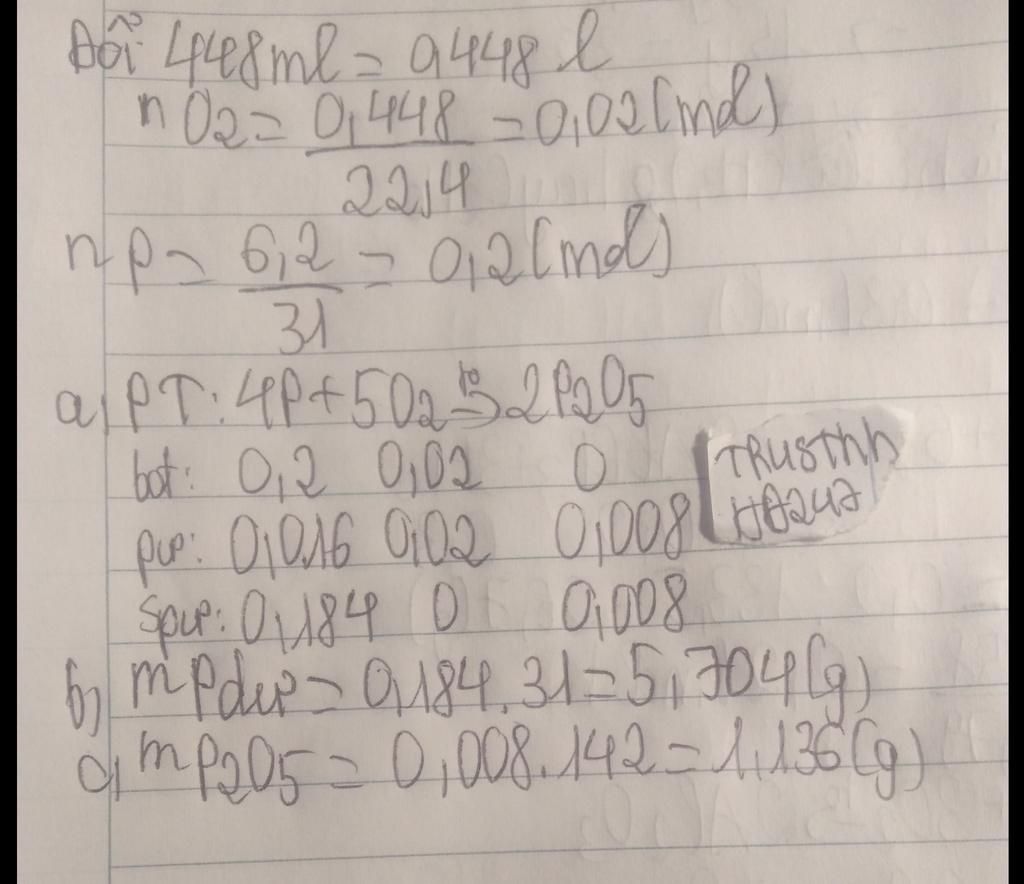 Đổi 448ml = 0,448 l
nO2 = 0,448/22,4 = 0,02(mol)
nP = 6,2/31 = 0,2(mol)
a, PT: 4P + 5O2 t°→ 2P2O5
bđt: 0,2 0,02 0
pư: 0,016 0,02 0,008
spư: 0,184 0 0,008
TRUSTHH
b, mP dư = 0,184.31 = 5,704(g)
c, mP2O5 = 0,008.142 = 1,136(g)